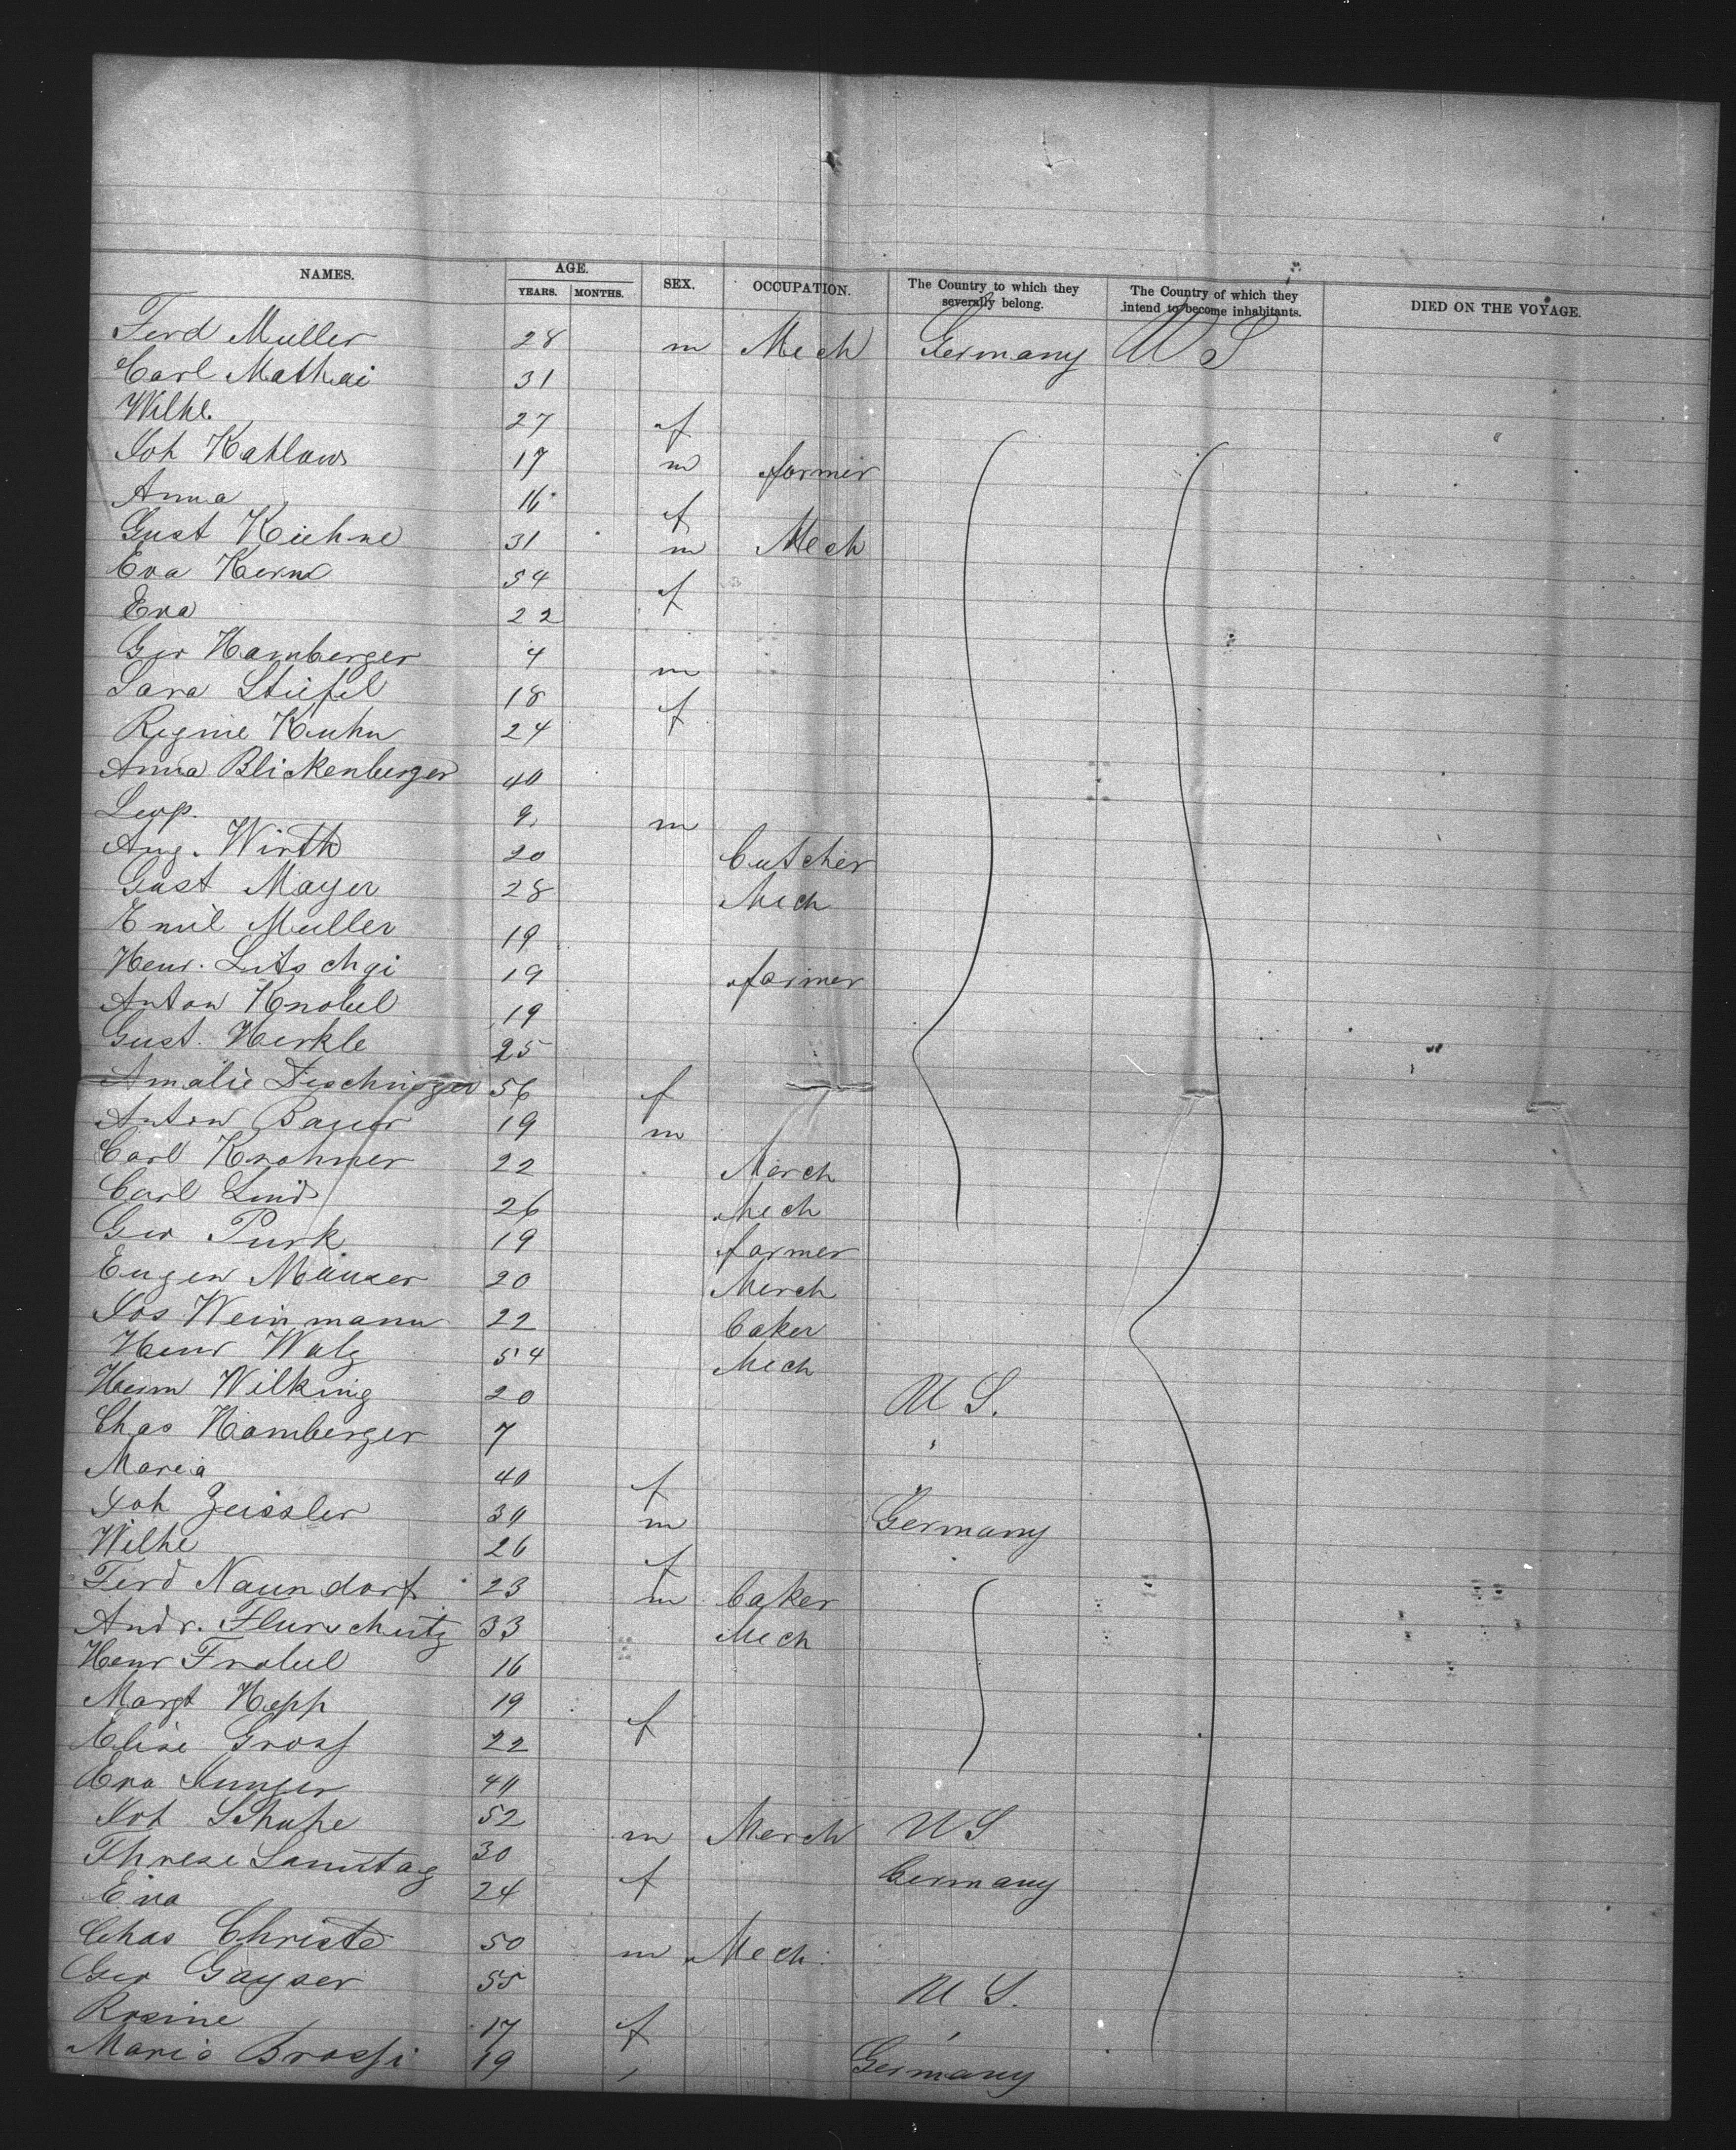 NAMES. AGE. SEX. OCCUPATION. The Country to which they severally belong. The Country of which they intend to become inhabitants. DIED ON THE VOYAGE.
YEARS. MONTHS.
Ferd Muller 28 m Mech Germany U S
Carl Mathai 31
Wilhe. 27 f
Joh Kahlow 17 m farmer
Anna 16 f
Gust Kuhne 31 m Mech
Eva Kern 54 f
Eva 22 f
Geo Hamberger 4 m
Sara Stiefel 18 f
Regine Kuhn 24
Anna Blickenberger 40
Leop. 9 m
Aug. Wirth 20 butcher
Gust Mayer 28 Mech
Emil Muller 19
Henr. Lutschgi 19 farmer
Anton Knobel 19
Gust. Herkle 25
Amalie 56 f
Anton Bauer 19 m
Carl Krohmer 22 Merch
Carl Lind 26 Mech
Geo Purk 19 farmer
Eugen Mauser 20 Merch
Jos Weinmann 22 baker
Henr Walz 54 Mech
Herm Wilking 20 U S.
Chas Hamberger 7 "
Maria 40 f
Joh Zeissler 30 m Germany
Wilhe 26 f
Ferd Naundorf 23 m baker
Andr. Flurschutz 33 Mech
Henr Frobel 16
Margt Hepp 19 f
Elise Gross 22
Eva Junger 40
Joh Schuhe 52 m Merch U S
Threse Samstag 30 f Germany
Eva 24
Chas Christe 50 m Mech.
Geo Gayser 55 U S.
Rosine 17 f "
Maria Brossi 19 " Germany